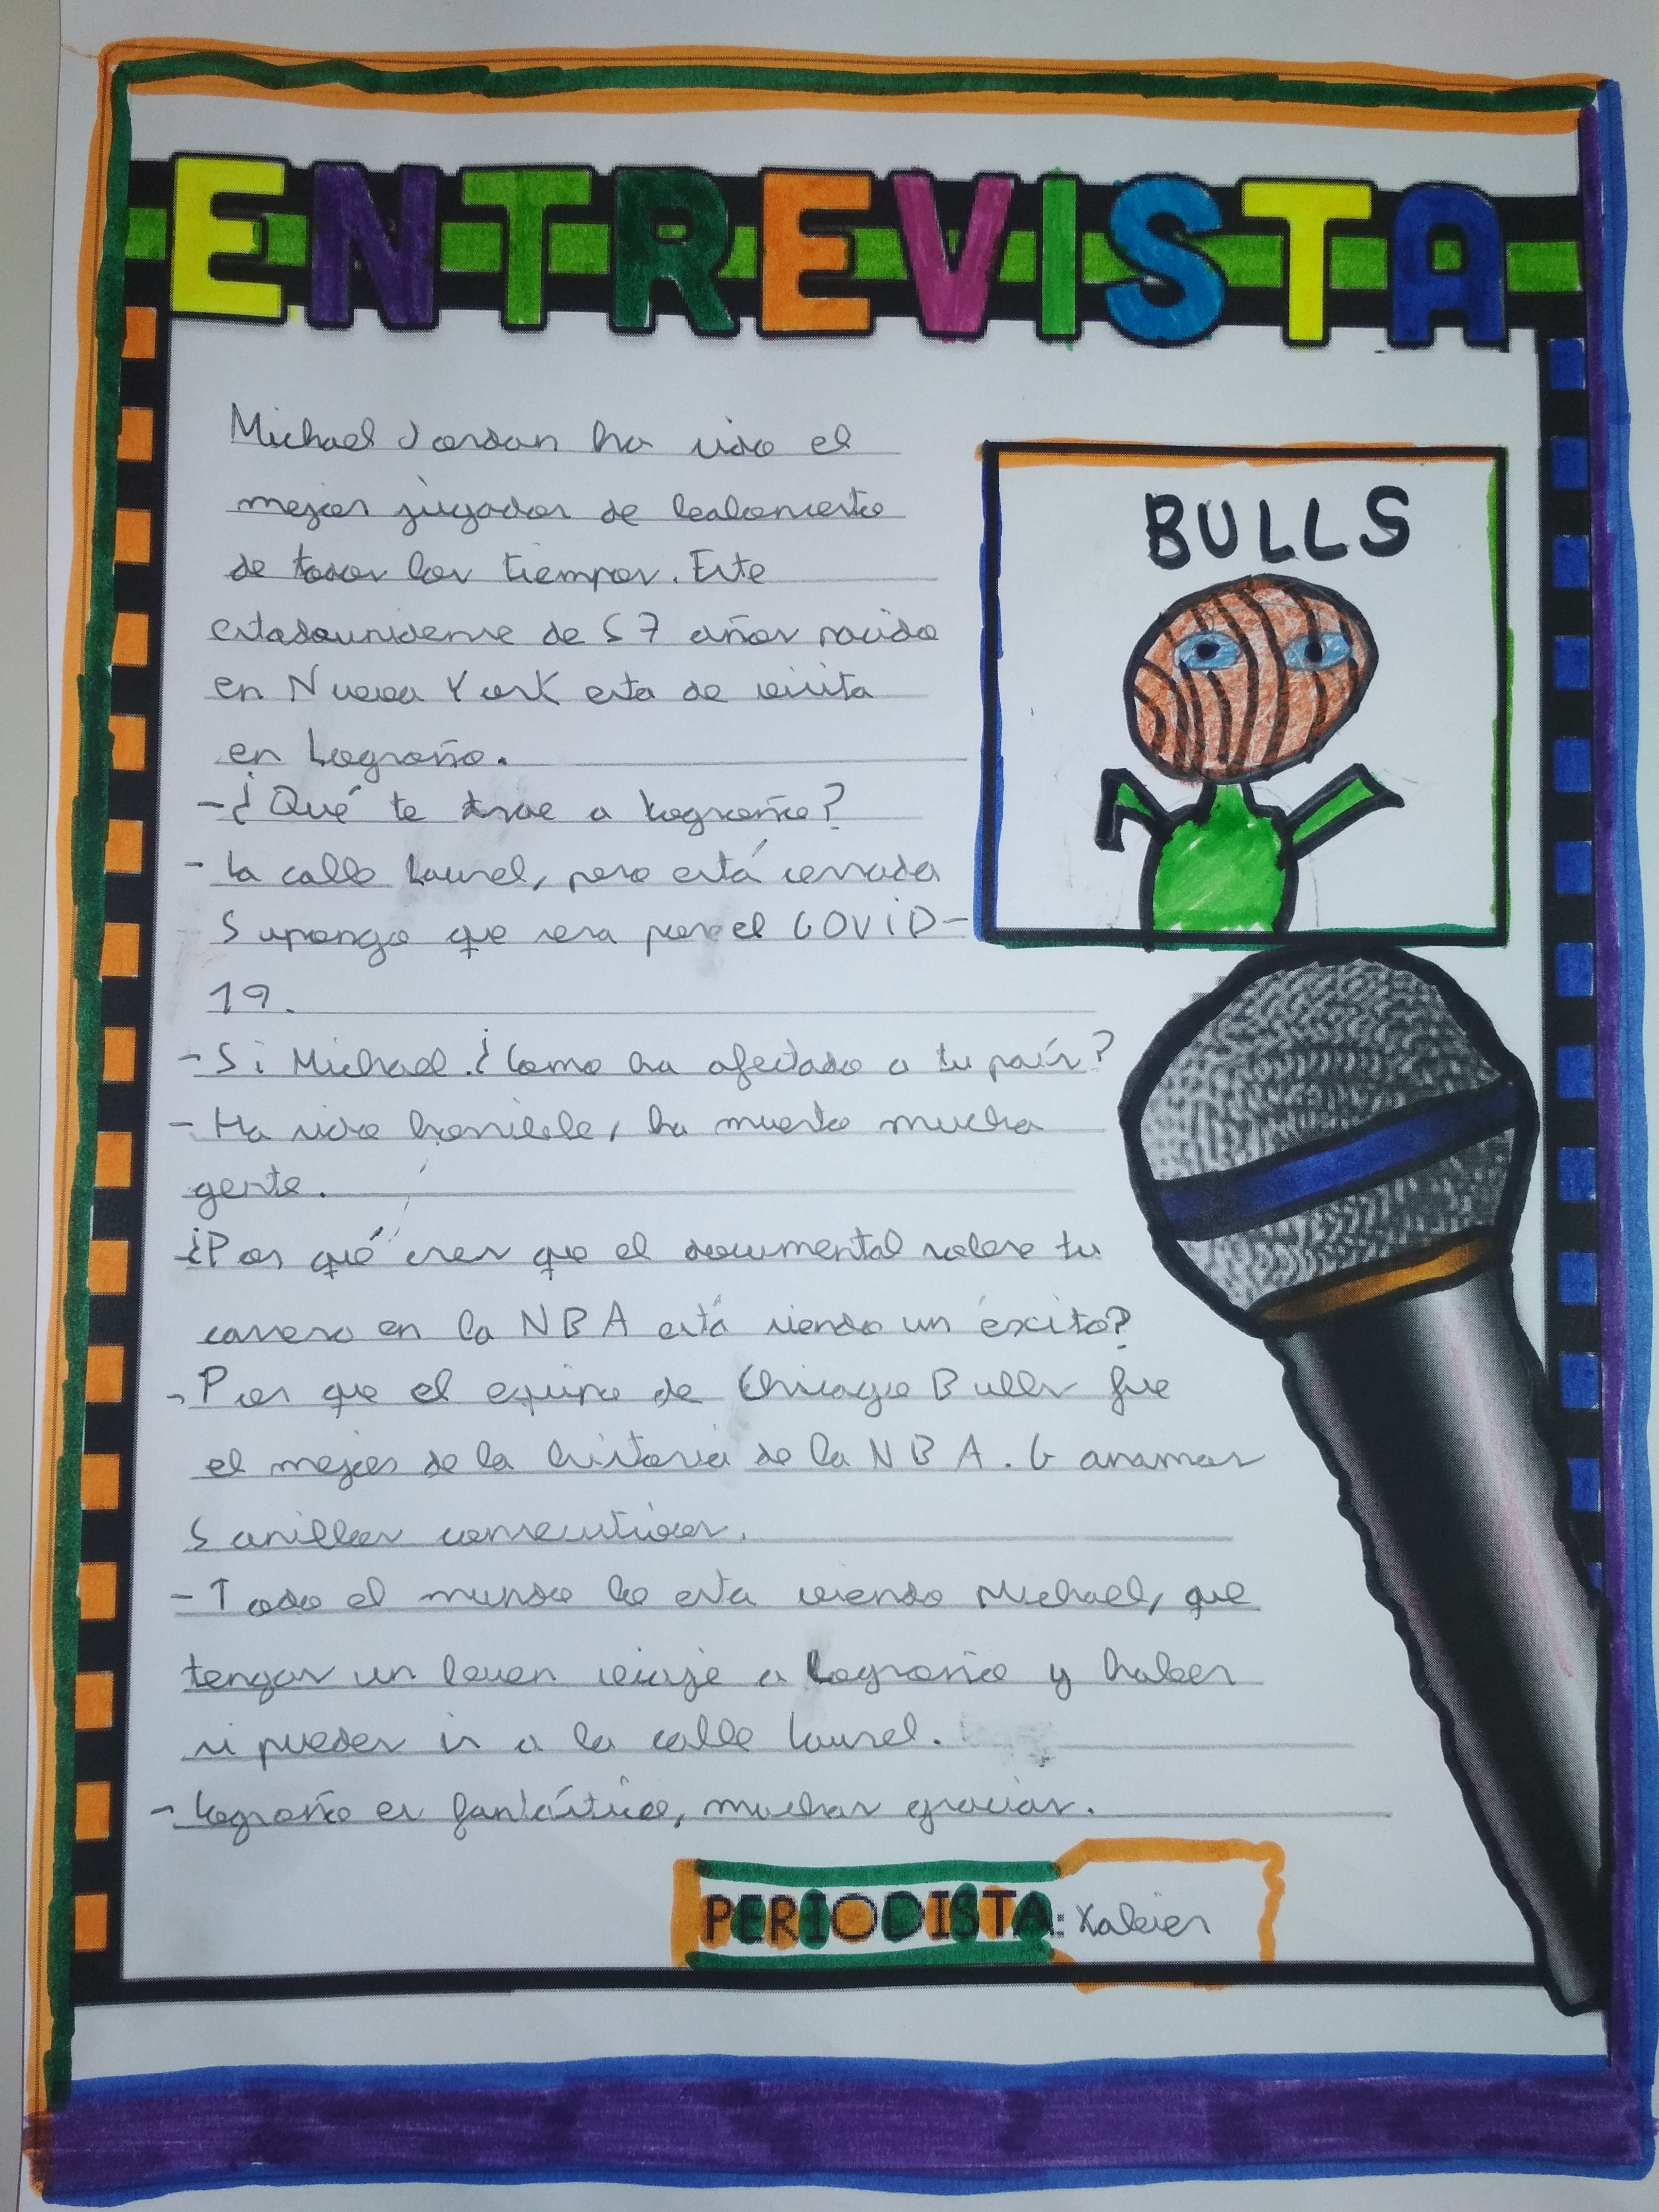 ENTREVISTA
Michael Jordan ha sido el
mejor jugador de baloncesto
de todos los tiempos. Este
estadounidense de 57 años nacido
en Nueva York esta de visita
en Logroño.
BULLS
-¿Qué te trae a Logroño?
- La calle Laurel, pero está cerrada
Supongo que sera por el COVID-
19.
- Si Michael. ¿Como ha afectado a tu país?
- Ha sido horrible, ha muerto mucha
gente.
¿Por qué crees que el documental sobre tu
carrera en la NBA está siendo un éxito?
- Por que el equipo de Chicago Bulls fue
el mejor de la historia de la NBA. Ganamos
5 anillos consecutivos.
- Todo el mundo lo esta viendo Michael, que
tengas un buen viaje a Logroño y haber
si puedes ir a la calle Laurel.
- Logroño es fantástico, muchas gracias.
PERIODISTA: Xabier